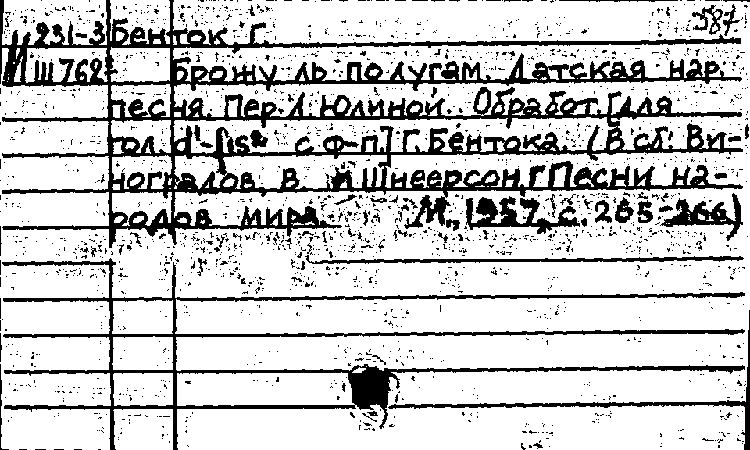 587
231-3 Бенток, Г.
М Ш 762² Брожу ль по лугам. Датская нар.
песня. Пер. Л. Юлиной. Обработ. [для
гол. d'-fis² с ф-п.] Г. Бентока. (В сб: Ви-
ноградов, В. и Шнеерсон, Г Песни на-
родов мира. М., 1957, с. 265-266)